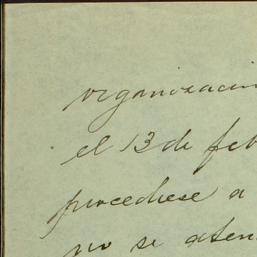 organizació
el 13 de feb
procediese a
no se aten